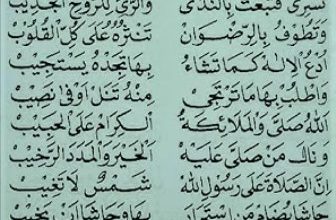 تَسْرِي فَتَبْعَثُ بِالنَّدَى وَالرَّيِّ لِلرُّوحِ الْجَدِيبِ
وَتَطُوفُ بِالرِّضْوَانِ تَنْثُرُهُ عَلَى كُلِّ الْقُلُوبِ
أُدْعُ الْإِلَهَ كَمَا تَشَاءُ بِهَا تَجِدْهُ يَسْتَجِيبُ
وَاطْلُبْ بِهَا مَا تَرْتَجِي مِنْهُ تَنَلْ أَوْفَى نَصِيبْ
اللهُ صَلَّى وَالْمَلَائِكَةُ الْكِرَامُ عَلَى الْحَبِيبْ
وَنَالَ مَنْ صَلَّى عَلَيْهِ الْخَيْرَ وَالْمَدَدَ الرَّحِيبْ
إِنَّ الصَّلَاةَ عَلَى رَسُولِ اللهِ شَمْسٌ لَا تَغِيبْ
حَاشَا يُضَامُ مَنِ اسْتَجَارَ بِهَا وَحَاشَا أَنْ يَخِيبْ